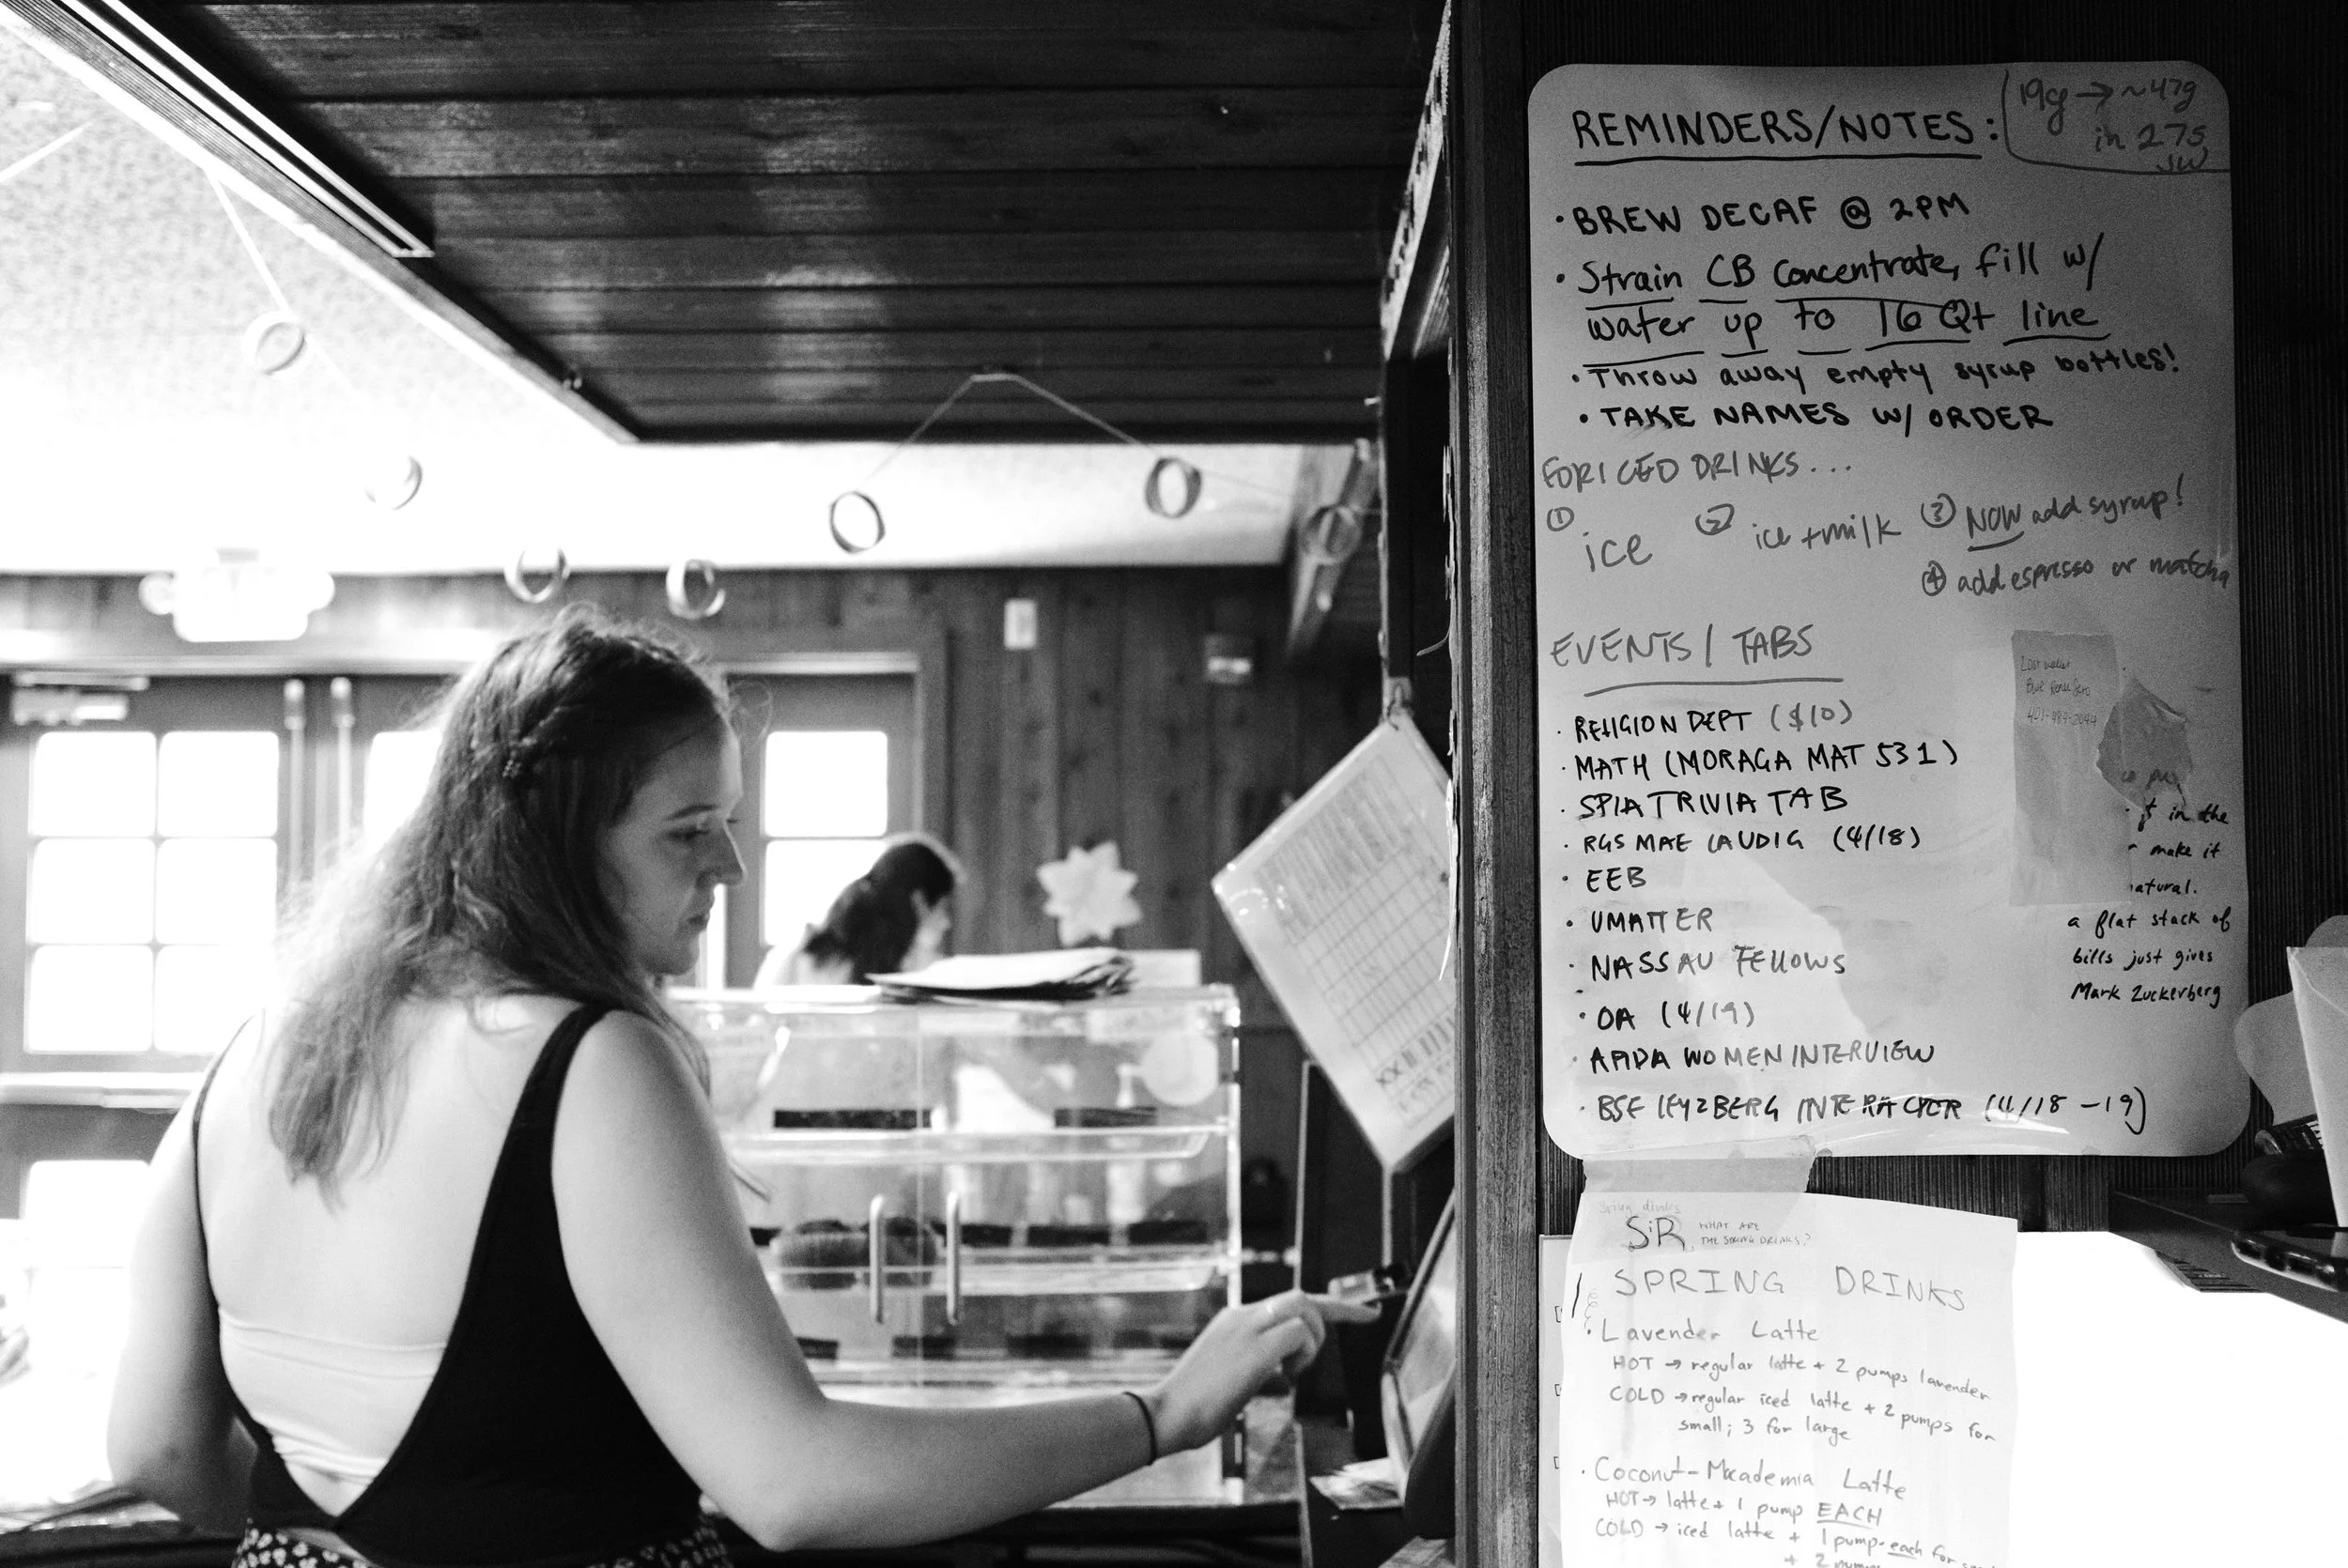 REMINDERS/NOTES:
19g → ~47g
in 27s
• BREW DECAF @ 2PM
• Strain CB Concentrate, fill w/
water up to 16 Qt line
• Throw away empty syrup bottles!
• TAKE NAMES W/ ORDER
FOR ICED DRINKS...
① ice ② ice + milk ③ NOW add syrup!
④ add espresso or matcha
EVENTS / TABS
• RELIGION DEPT ($10)
• MATH (MORAGA MAT 531)
• SPIA TRIVIA TAB
• RGS MAE (4/18)
• EEB
• UMATTER
• NASSAU FELLOWS
• OA (4/19)
• WOMEN INTERVIEW
• BSE (4/18-19)
Lost wallet
Blue
in the
make it
atural.
a flat stack of
bills just gives
Mark Zuckerberg
Spring drinks
SiR WHAT ARE
THE SPRING DRINKS?
SPRING DRINKS
• Lavender Latte
HOT → regular latte + 2 pumps lavender
COLD → regular iced latte + 2 pumps for
small; 3 for large
• Coconut-Macademia Latte
HOT → latte + 1 pump EACH
COLD → iced latte + 1 pump each for
+ 2 pumps